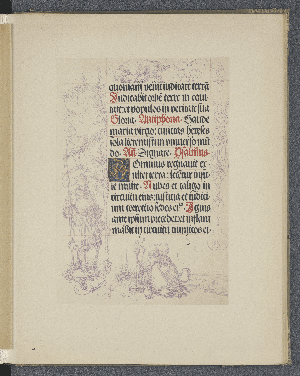 quoniam venit iudicare terrā
Judicabit orbē terre in equi
tate: et populos in veritate sua
Gloria. Antiphona. Gaude
maria virgo: cunctas hereses
sola interemisti in universo mū
do. Añ Dignare. Psalmus
Dominus regnavit ex
ultet terra: letētur insu
le multe. Nubes et caligo in
circuitu eius: iusticia et iudici
um correctio sedis eiꝰ. Ignis
ante ipsum precedet: et inflam
mabit in circuitu inimicos ei